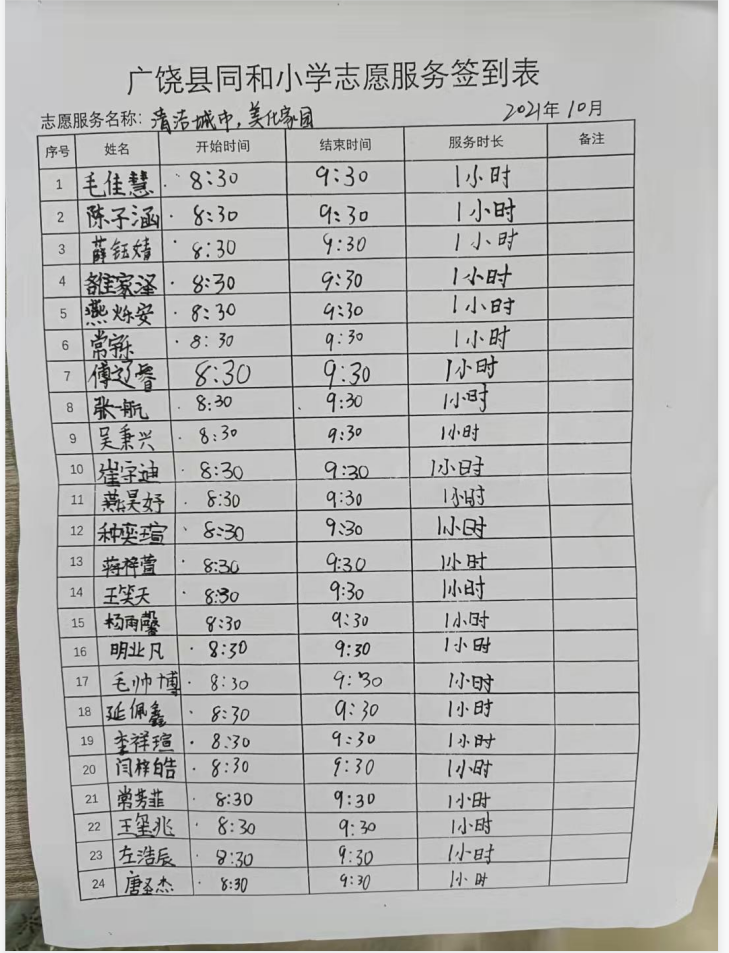 广饶县同和小学志愿服务签到表
志愿服务名称：清洁城市，美化家园 2021年10月
序号 姓名 开始时间 结束时间 服务时长 备注
1 毛佳慧 8:30 9:30 1小时
2 陈子涵 8:30 9:30 1小时
3 薛钰婧 8:30 9:30 1小时
4 雒家泽 8:30 9:30 1小时
5 燕烁安 8:30 9:30 1小时
6 常宇 8:30 9:30 1小时
7 傅 睿 8:30 9:30 1小时
8 张一航 8:30 9:30 1小时
9 吴秉兴 8:30 9:30 1小时
10 崔宗迪 8:30 9:30 1小时
11 燕昊妤 8:30 9:30 1小时
12 种奕瑄 8:30 9:30 1小时
13 蒋梓萱 8:30 9:30 1小时
14 王笑天 8:30 9:30 1小时
15 杨雨馨 8:30 9:30 1小时
16 明业凡 8:30 9:30 1小时
17 毛帅博 8:30 9:30 1小时
18 延佩鑫 8:30 9:30 1小时
19 李祥瑄 8:30 9:30 1小时
20 闫梓皓 8:30 9:30 1小时
21 常芳菲 8:30 9:30 1小时
22 王玺兆 8:30 9:30 1小时
23 左浩辰 8:30 9:30 1小时
24 唐圣杰 8:30 9:30 1小时